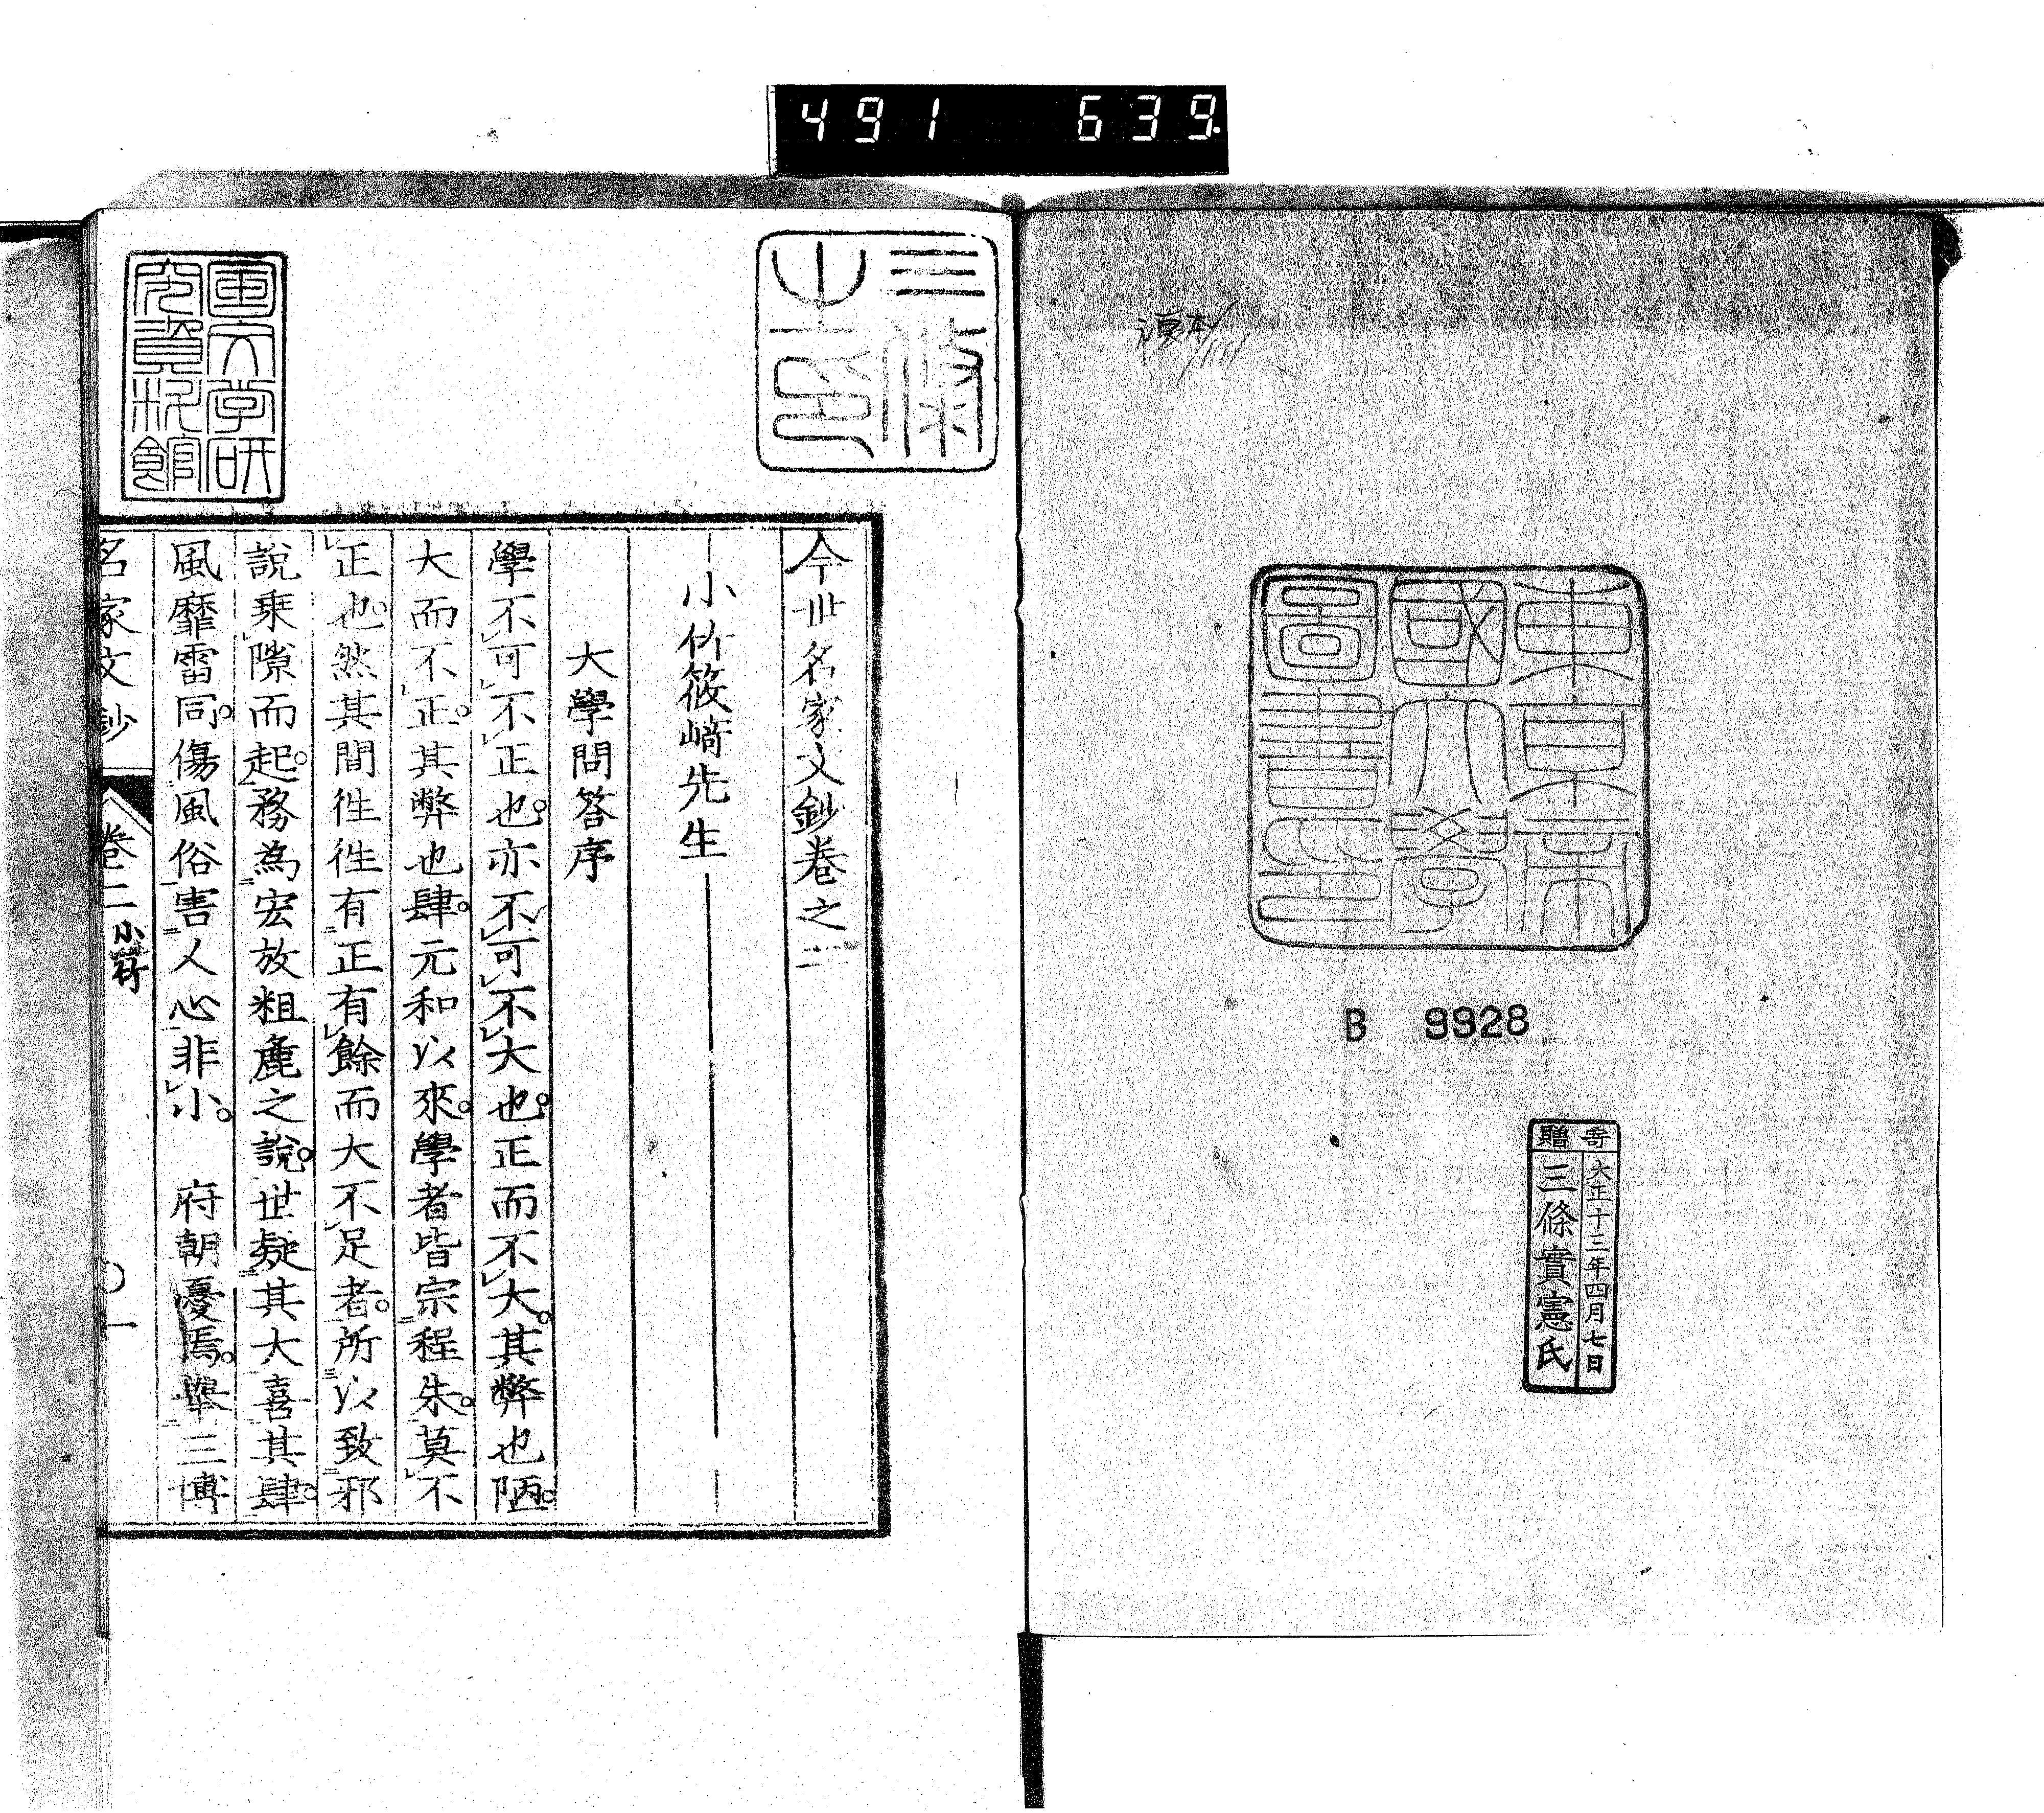 491 639
複本
東京帝
國大學
圖書印
B 9928
寄贈
大正十三年四月七日
三條實憲氏
三條
之印
国文学研
究資料館
今世名家文鈔卷之二
小竹筱﨑先生
大學問答序
學不可不正也。亦不可不大也。正而不大。其弊也陋。
大而不正。其弊也肆。元和以來。學者皆宗程朱。莫不
正也。然其間徃徃有正有餘而大不足者。所以致邪
說乘隙而起。務為宏放粗麁之說。世凝其大喜其肆。
風靡雷同。傷風俗害人心非小。 府朝憂焉。舉三博
名家文鈔 卷二 小竹 〇一